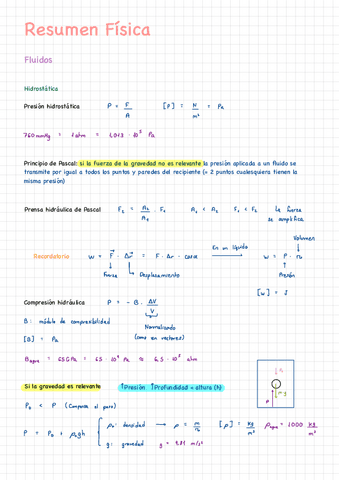 Resumen Física
Fluidos
Hidrostática
Presión hidrostática P = F/A [P] = N/m² = Pa
760 mmHg = 1 atm = 1,013 · 10⁵ Pa
Principio de Pascal: si la fuerza de la gravedad no es relevante la presión aplicada a un fluido se
transmite por igual a todos los puntos y paredes del recipiente (÷ 2 puntos cualesquiera tienen la
misma presión)
Prensa hidráulica de Pascal F₂ = A₂/A₁ · F₁ A₁ < A₂ F₁ < F₂ La fuerza
se amplifica
Volumen
Recordatorio W = F · Δr = F · Δr · cosα En un líquido W = P ·
Fuerza Desplazamiento Presión
[W] = J
Compresión hidráulica P = - B · ΔV/V
B: módulo de compresibilidad Normalizando
[B] = Pa (como en vectores)
B agua =
Si la gravedad es relevante ↑Presión ↑Profundidad = altura (h)
P₀ < P
P = P₀ + ρgh ρ: densidad → ρ = m/V [ρ] = kg/m³ ρ agua = 1000 kg/m³
g: gravedad g = 9,81 m/s²